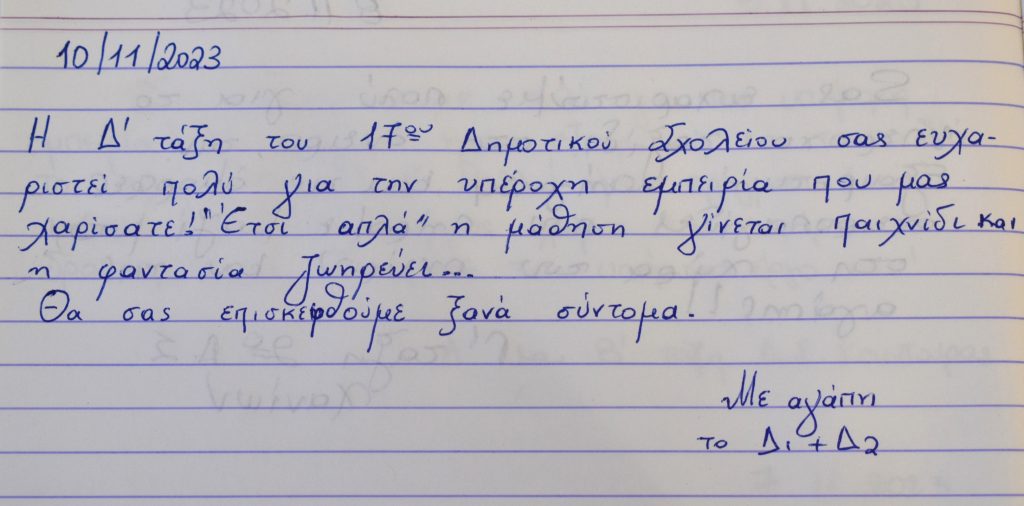 10/11/2023
Η Δ' τάξη του 17ου Δημοτικού Σχολείου σας ευχα-
ριστεί πολύ για την υπέροχη εμπειρία που μας
χαρίσατε! "Έτσι απλά" η μάθηση γίνεται παιχνίδι και
η φαντασία ζωηρεύει...
Θα σας επισκεφθούμε ξανά σύντομα.
Με αγάπη
το Δ1 + Δ2